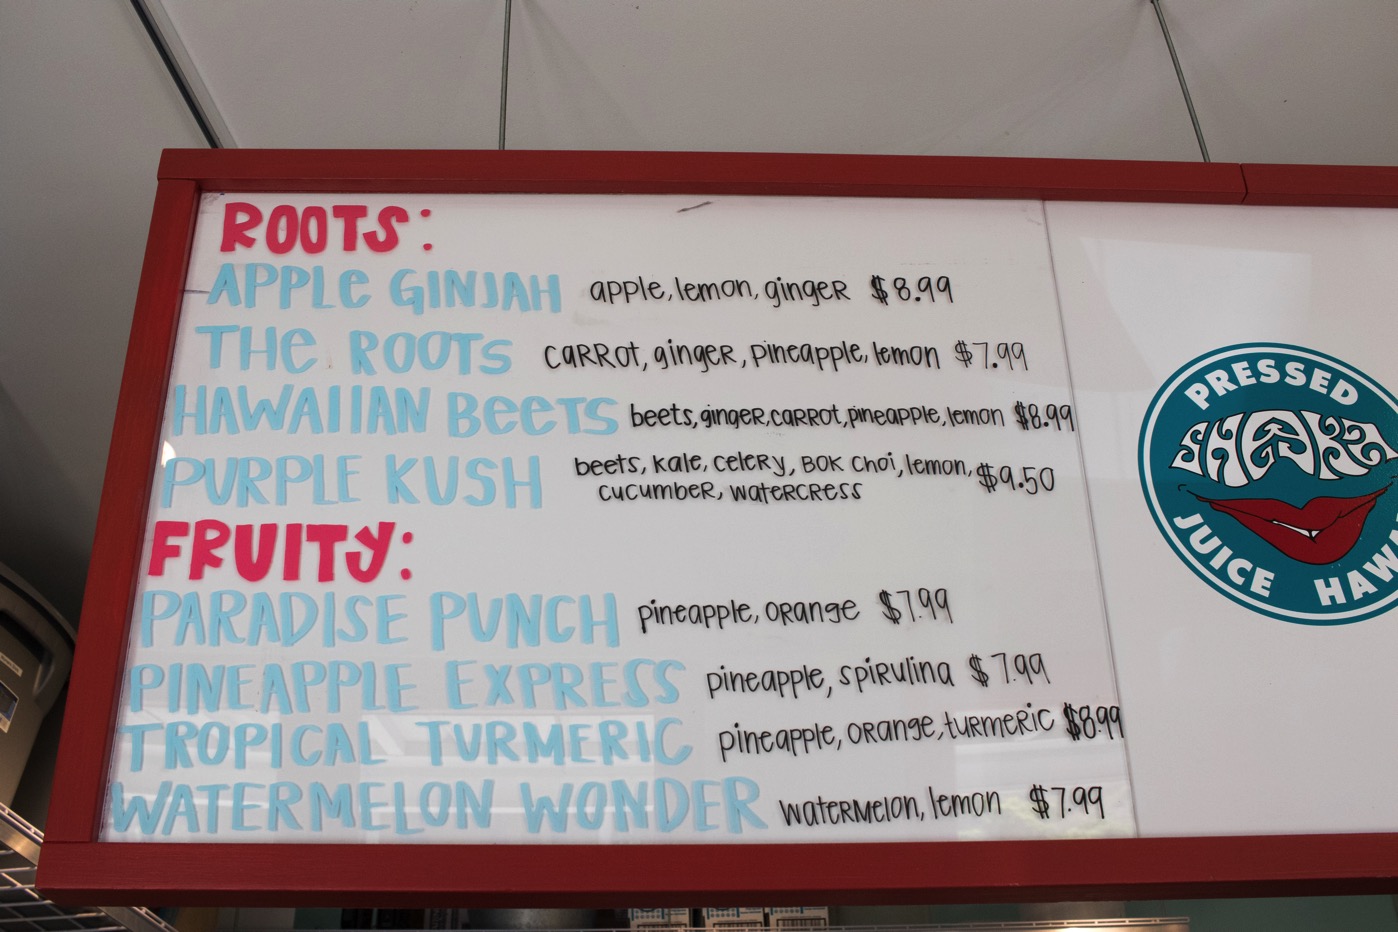 ROOTS:
APPLE GINJAH apple, lemon, ginger $8.99
THE ROOTS carrot, ginger, pineapple, lemon $7.99
HAWAIIAN BEETS beets, ginger, carrot, pineapple, lemon $8.99
PURPLE KUSH beets, kale, celery, bok choi, lemon, $9.50
cucumber, watercress
FRUITY:
PARADISE PUNCH pineapple, orange $7.99
PINEAPPLE EXPRESS pineapple, spirulina $7.99
TROPICAL TURMERIC pineapple, orange, turmeric $8.99
WATERMELON WONDER watermelon, lemon $7.99
PRESSED
SHEAKA
JUICE HAW